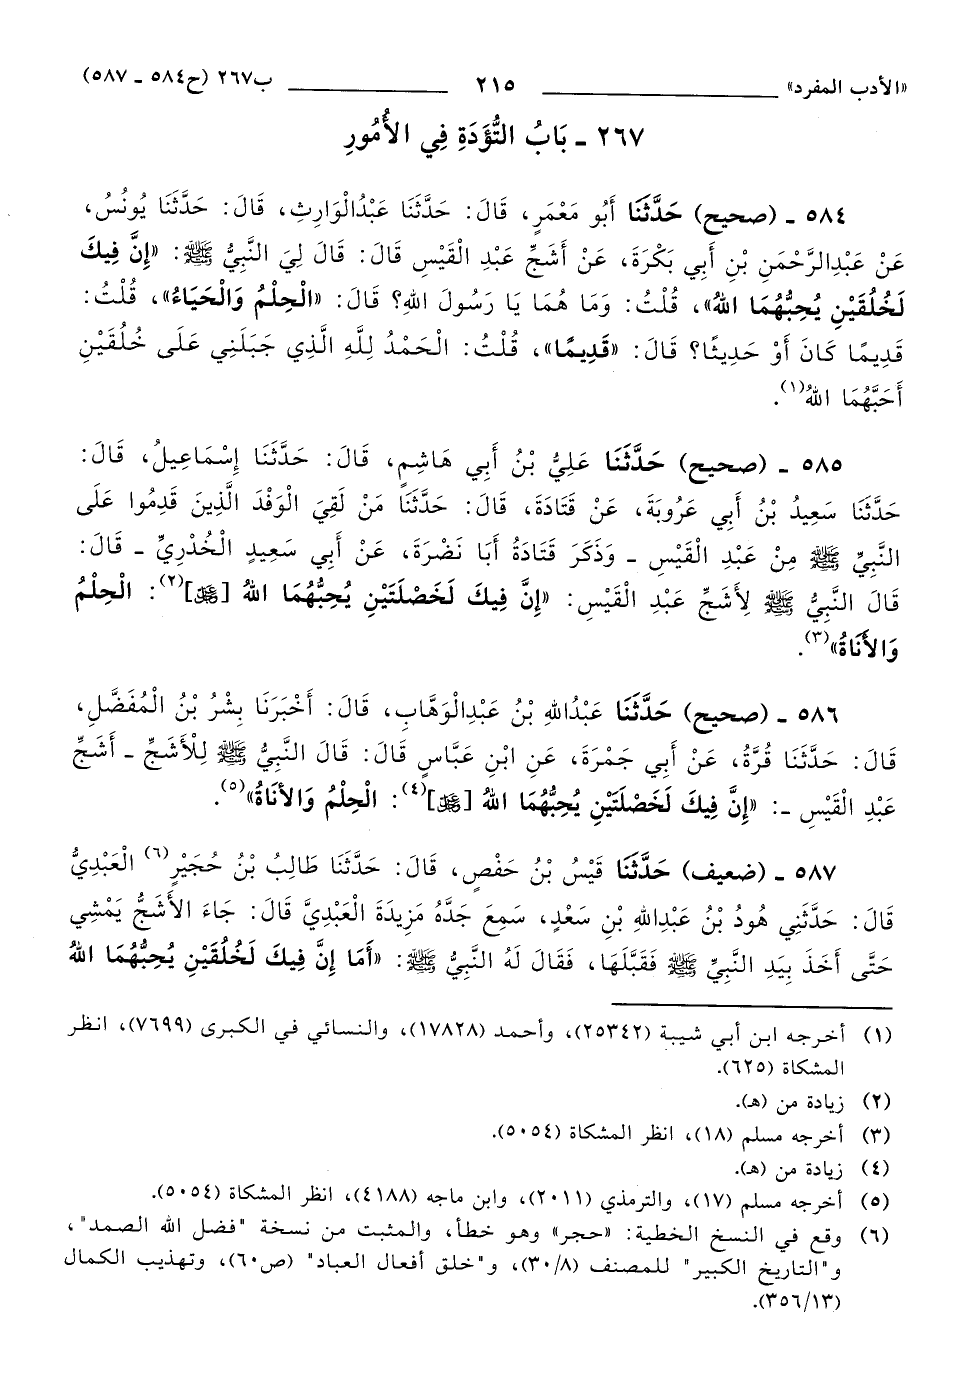 «الأدب المفرد» ٢١٥ ب٢٦٧ (ح٥٨٤ ـ ٥٨٧)
٢٦٧ ـ بَابُ التُّؤَدَةِ فِي الأُمُورِ
٥٨٤ ـ (صحيح) حَدَّثَنَا أَبُو مَعْمَرٍ، قَالَ: حَدَّثَنَا عَبْدُالْوَارِثِ، قَالَ: حَدَّثَنَا يُونُسُ،
عَنْ عَبْدِالرَّحْمَنِ بْنِ أَبِي بَكْرَةَ، عَنْ أَشَجِّ عَبْدِ الْقَيْسِ قَالَ: قَالَ لِيَ النَّبِيُّ ﷺ: «إِنَّ فِيكَ
لَخُلُقَيْنِ يُحِبُّهُمَا اللهُ»، قُلْتُ: وَمَا هُمَا يَا رَسُولَ اللهِ؟ قَالَ: «الْحِلْمُ وَالْحَيَاءُ»، قُلْتُ:
قَدِيمًا كَانَ أَوْ حَدِيثًا؟ قَالَ: «قَدِيمًا»، قُلْتُ: الْحَمْدُ لِلَّهِ الَّذِي جَبَلَنِي عَلَى خُلُقَيْنِ
أَحَبَّهُمَا اللهُ(١).
٥٨٥ ـ (صحيح) حَدَّثَنَا عَلِيُّ بْنُ أَبِي هَاشِمٍ، قَالَ: حَدَّثَنَا إِسْمَاعِيلُ، قَالَ:
حَدَّثَنَا سَعِيدُ بْنُ أَبِي عَرُوبَةَ، عَنْ قَتَادَةَ، قَالَ: حَدَّثَنَا مَنْ لَقِيَ الْوَفْدَ الَّذِينَ قَدِمُوا عَلَى
النَّبِيِّ ﷺ مِنْ عَبْدِ الْقَيْسِ ـ وَذَكَرَ قَتَادَةُ أَبَا نَضْرَةَ، عَنْ أَبِي سَعِيدٍ الْخُدْرِيِّ ـ قَالَ:
قَالَ النَّبِيُّ ﷺ لِأَشَجِّ عَبْدِ الْقَيْسِ: «إِنَّ فِيكَ لَخَصْلَتَيْنِ يُحِبُّهُمَا اللهُ [ﷻ](٢): الْحِلْمُ
وَالأَنَاةُ»(٣).
٥٨٦ ـ (صحيح) حَدَّثَنَا عَبْدُاللهِ بْنُ عَبْدِالْوَهَّابِ، قَالَ: أَخْبَرَنَا بِشْرُ بْنُ الْمُفَضَّلِ،
قَالَ: حَدَّثَنَا قُرَّةُ، عَنْ أَبِي جَمْرَةَ، عَنِ ابْنِ عَبَّاسٍ قَالَ: قَالَ النَّبِيُّ ﷺ لِلْأَشَجِّ ـ أَشَجِّ
عَبْدِ الْقَيْسِ ـ: «إِنَّ فِيكَ لَخَصْلَتَيْنِ يُحِبُّهُمَا اللهُ [ﷻ](٤): الْحِلْمُ وَالأَنَاةُ»(٥).
٥٨٧ ـ (ضعيف) حَدَّثَنَا قَيْسُ بْنُ حَفْصٍ، قَالَ: حَدَّثَنَا طَالِبُ بْنُ حُجَيْرٍ(٦) الْعَبْدِيُّ
قَالَ: حَدَّثَنِي هُودُ بْنُ عَبْدِاللهِ بْنِ سَعْدٍ، سَمِعَ جَدَّهُ مَزِيدَةَ الْعَبْدِيَّ قَالَ: جَاءَ الأَشَجُّ يَمْشِي
حَتَّى أَخَذَ بِيَدِ النَّبِيِّ ﷺ فَقَبَّلَهَا، فَقَالَ لَهُ النَّبِيُّ ﷺ: «أَمَا إِنَّ فِيكَ لَخُلُقَيْنِ يُحِبُّهُمَا اللهُ
(١) أخرجه ابن أبي شيبة (٢٥٣٤٢)، وأحمد (١٧٨٢٨)، والنسائي في الكبرى (٧٦٩٩)، انظر
المشكاة (٦٢٥).
(٢) زيادة من (هـ).
(٣) أخرجه مسلم (١٨)، انظر المشكاة (٥٠٥٤).
(٤) زيادة من (هـ).
(٥) أخرجه مسلم (١٧)، والترمذي (٢٠١١)، وابن ماجه (٤١٨٨)، انظر المشكاة (٥٠٥٤).
(٦) وقع في النسخ الخطية: «حجر» وهو خطأ، والمثبت من نسخة "فضل الله الصمد"،
و"التاريخ الكبير" للمصنف (٣٠/٨)، و"خلق أفعال العباد" (ص٦٠)، وتهذيب الكمال
(٣٥٦/١٣).